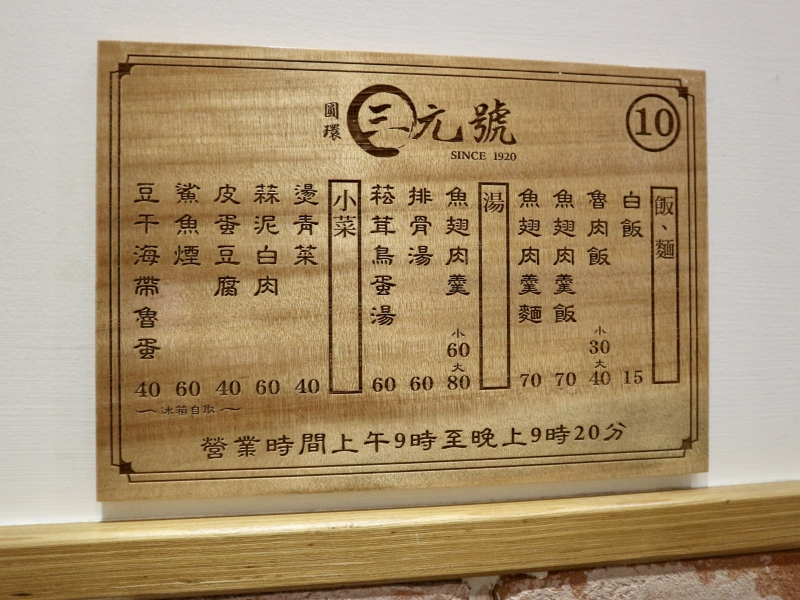 圓環
三元號
SINCE 1920
10
飯、麵
白飯 15
魯肉飯 小 30 大 40
魚翅肉羹飯 70
魚翅肉羹麵 70
湯
魚翅肉羹 小 60 大 80
排骨湯 60
菘茸鳥蛋湯 60
小菜
燙青菜 40
蒜泥白肉 60
皮蛋豆腐 40
鯊魚煙 60
豆干海帶魯蛋 40
冰箱自取
營業時間上午9時至晚上9時20分